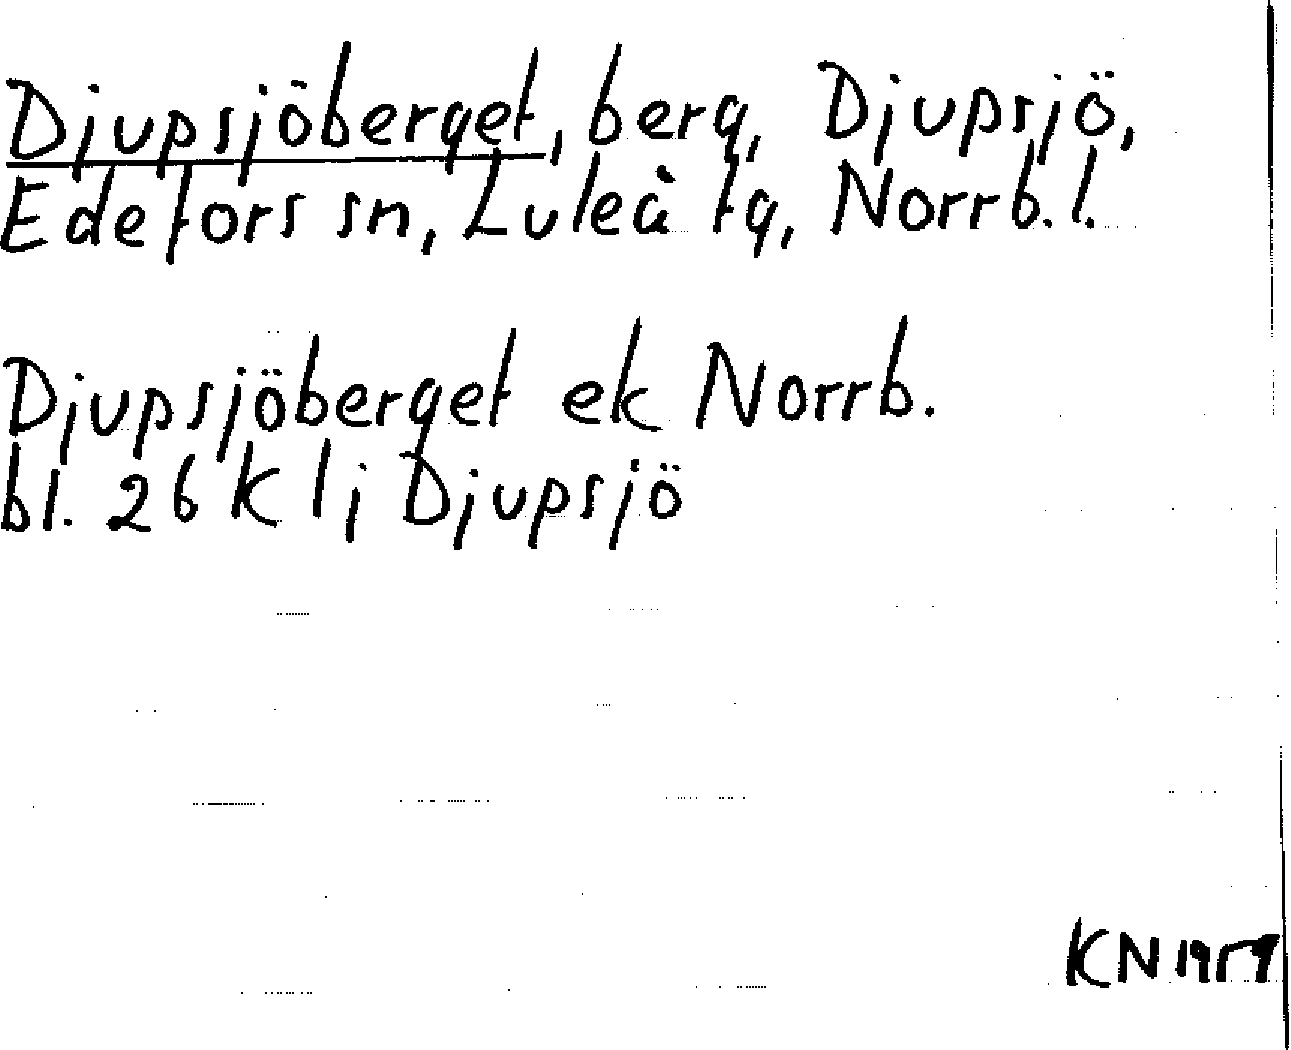 Djupsjöberget, berg, Djupsjö,
Edefors sn, Luleå tg, Norrb. l.
Djupsjöberget ek Norrb.
bl. 26 K l j Djupsjö
KN 1959